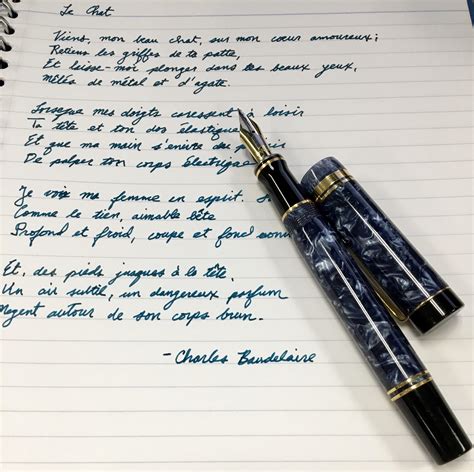 Le Chat
Viens, mon beau chat, sur mon cœur amoureux;
Retiens les griffes de ta patte,
Et laisse-moi plonger dans tes beaux yeux,
Mêlés de métal et d'agate.
Lorsque mes doigts caressent à loisir
Ta tête et ton dos élastique
Et que ma main s'enivre du
De palper ton corps électrique
Je vois ma femme en esprit.
Comme le tien, aimable bête
Profond et froid, coupe et fend
Et, des pieds jusques à la tête,
Un air subtil, un dangereux parfum
Nagent autour de son corps brun.
- Charles Baudelaire